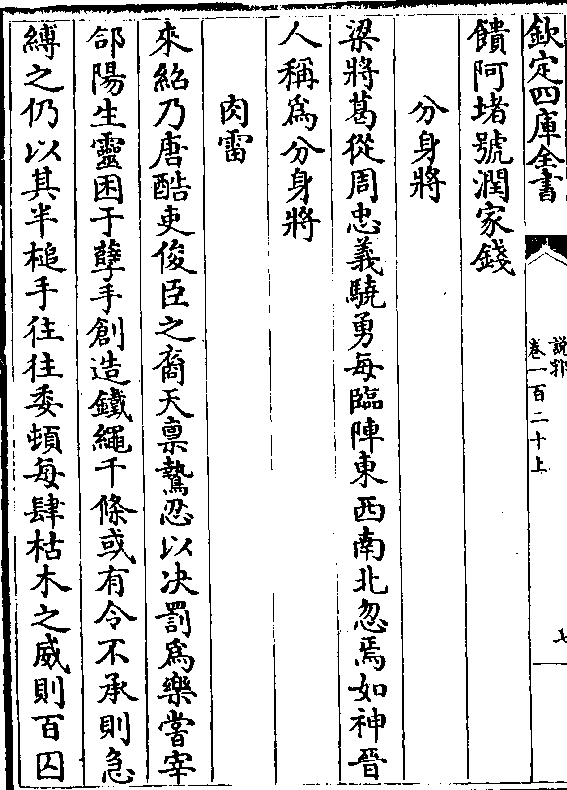 欽定四庫全書
說郛
卷一百二十上
七
饋阿堵號潤家錢
分身將
梁將葛從周忠義驍勇每臨陣東西南北忽焉如神晉
人稱為分身將
肉雷
來紹乃唐酷吏俊臣之裔天稟鷙忍以决罰為樂嘗宰
郃陽生靈困于孽手創造鐵繩千條或有令不承則急
縛之仍以其半槌手往往委頓每肆枯木之威則百囚